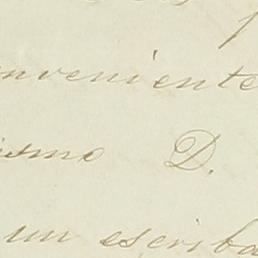 nveniente
ismo D.
un escriba